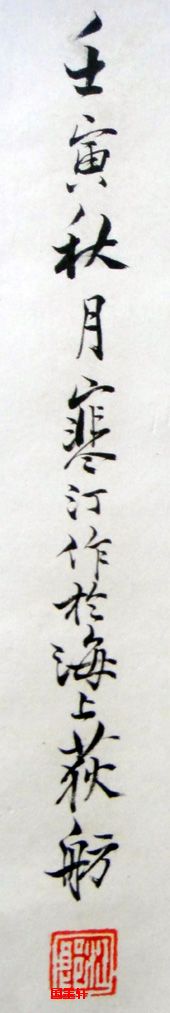 壬寅秋月寒汀作於海上荻舫
国墨轩